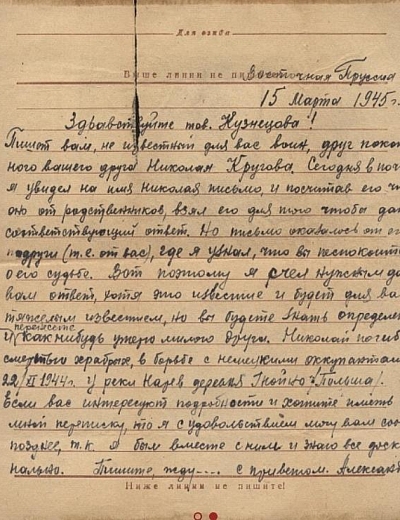 Для адреса
Выше линии не пи
Восточная Пруссия
15 Марта 1945г.
Здравствуйте тов. Кузнецова!
Пишет вам, не известный для вас воин, друг покой
ного вашего друга Николая Кругова. Сегодня в поч
я увидел на имя Николая письмо, и посчитав его ч
оно от родственников, взял его для того чтобы да
соответствующий ответ. Но письмо оказалось от
подруги (т.е. от вас), где я узнал, что вы беспокоите
о его судьбе. Вот поэтому я счел нужным да
вам ответ, хотя это известие и будет для ва
тяжелым известием, но вы будете знать определе
и перенесете как нибудь утерю милого друга. Николай погиб
смертью храбрых, в борьбе с немецкими оккупантам
22/XI 1944г. у реки Нарев деревня Гнойно /Польша/.
Если вас интересуют подробности и хотите иметь
мной переписку, то я с удовольствием могу вам соо
позднее, т.к. я был вместе с ним и знаю все доск
нально. Пишите, жду.... с приветом. Александ
Ниже линии не пишите!